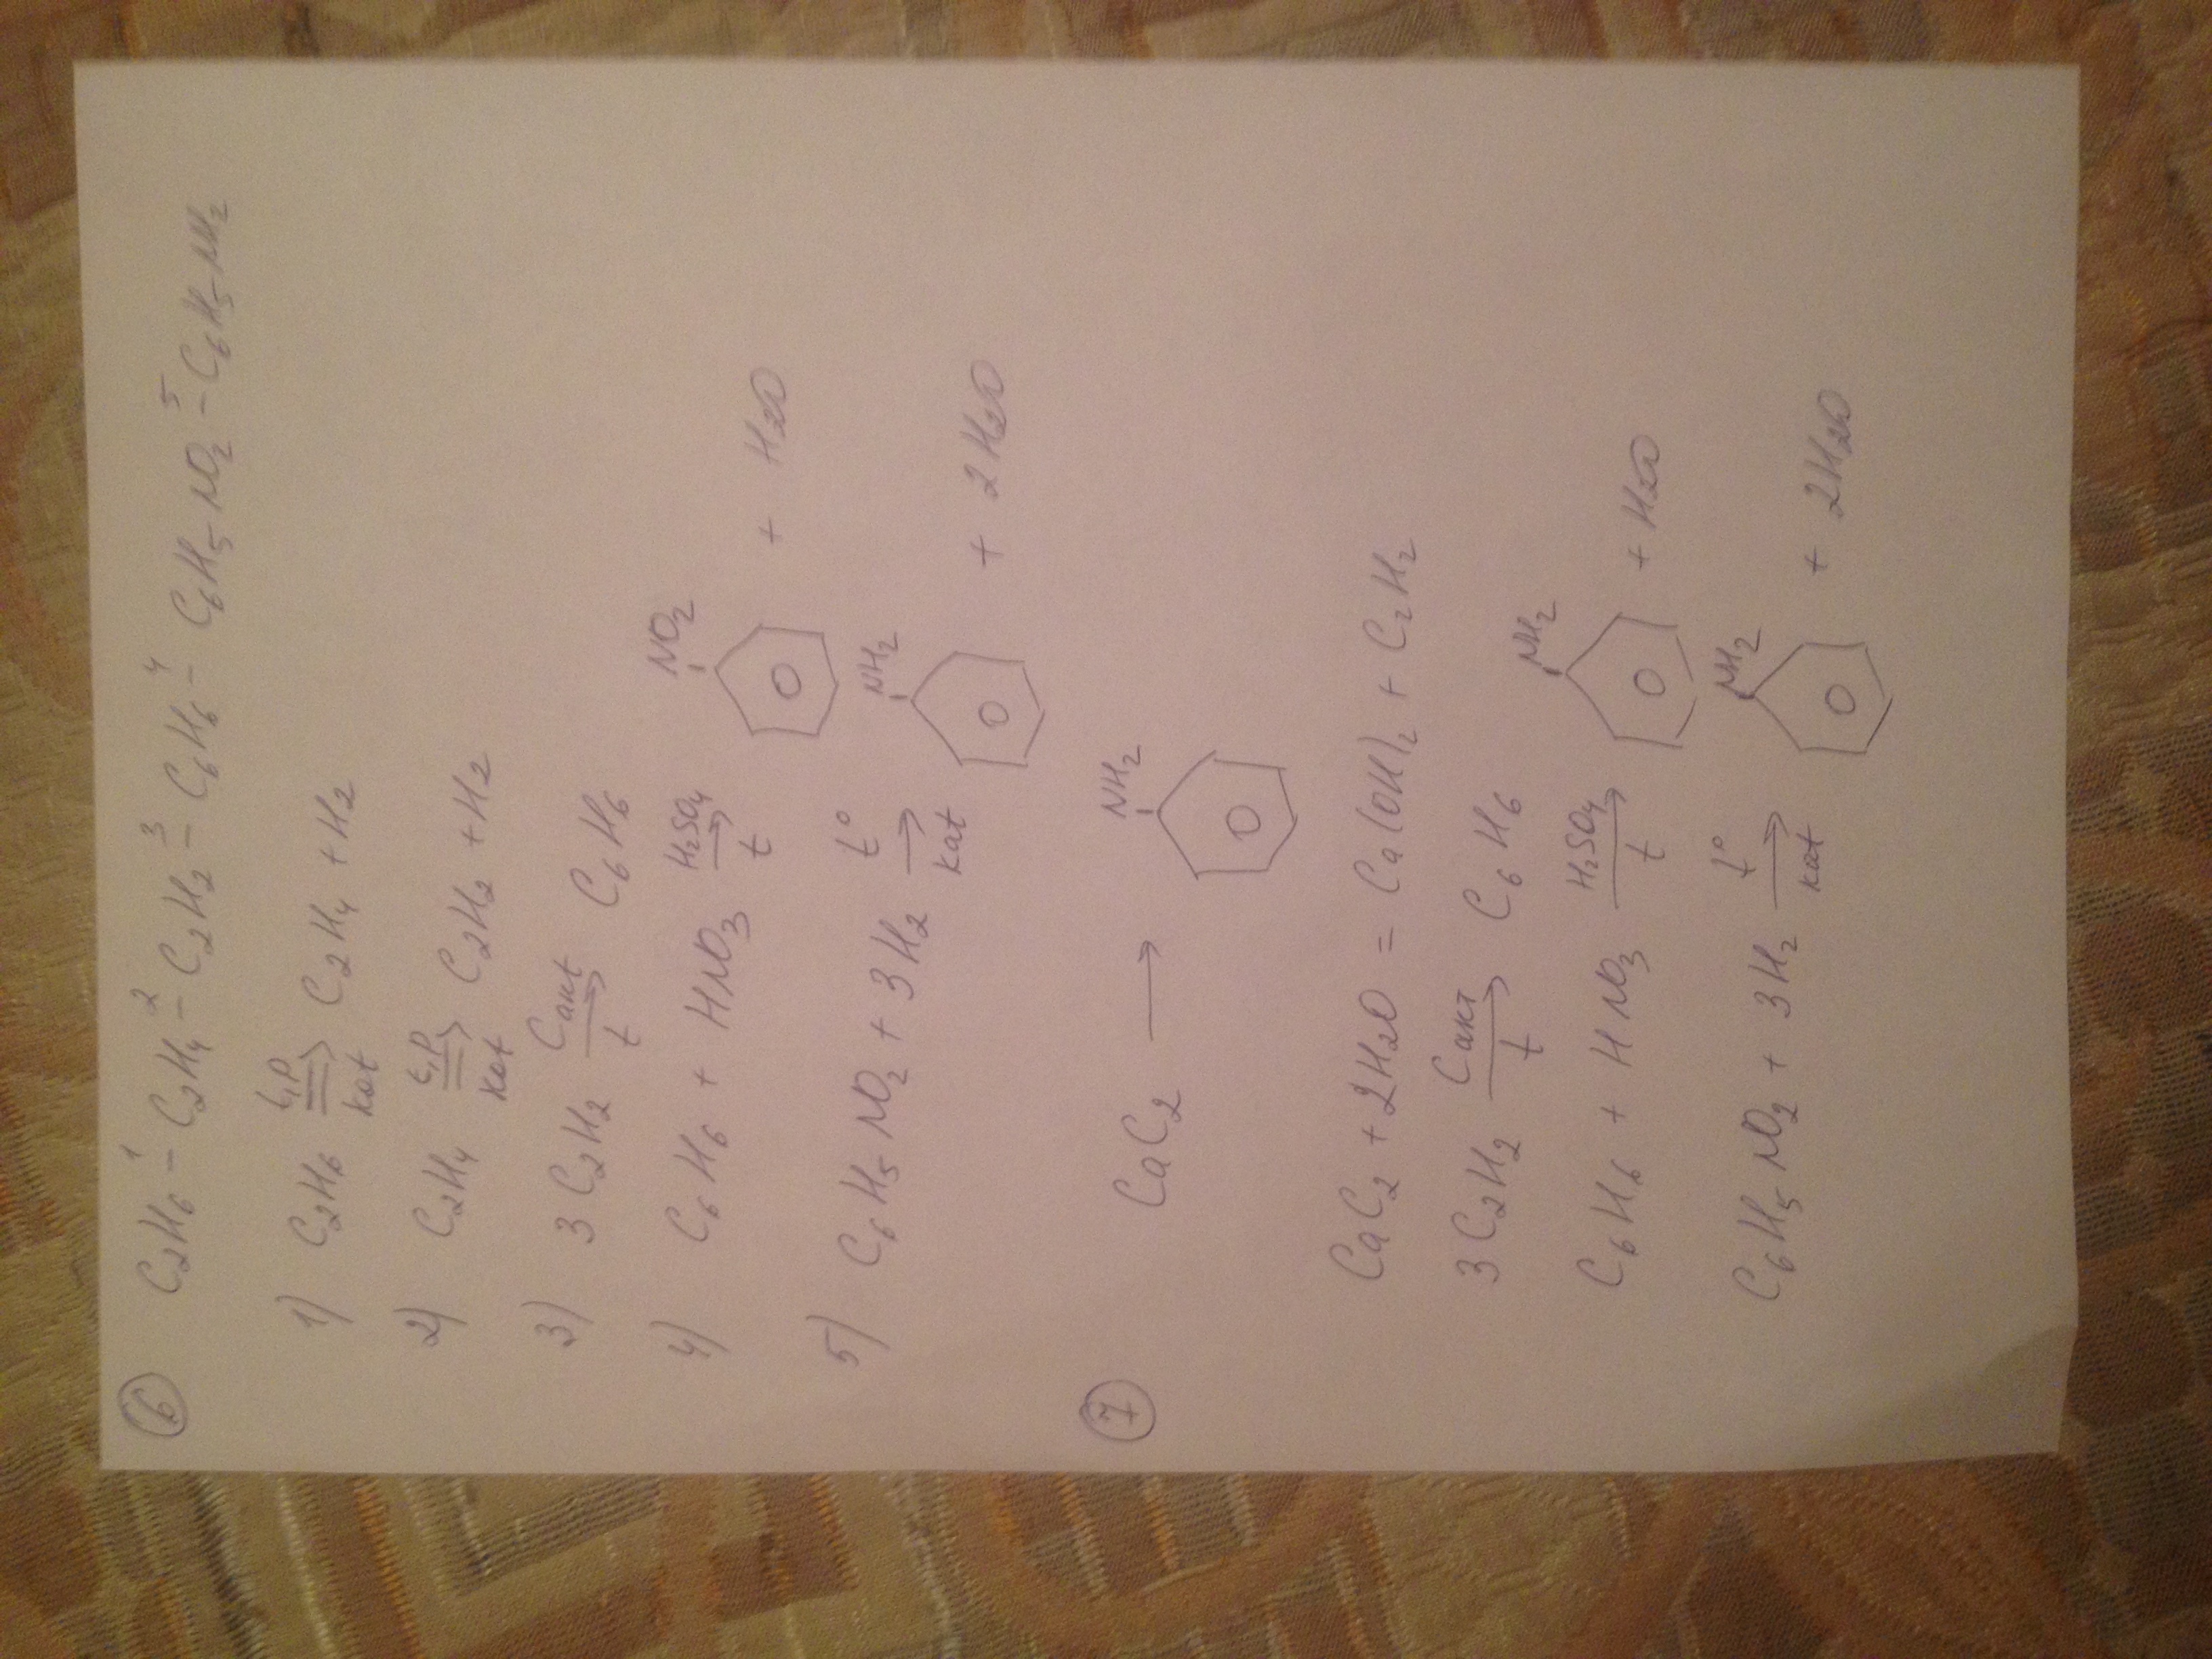 6 C₂H₆ –¹ C₂H₄ –² C₂H₂ –³ C₆H₆ –⁴ C₆H₅–NO₂ –⁵ C₆H₅–NH₂
1) C₂H₆ t,P ⇒ kat C₂H₄ + H₂
2) C₂H₄ t,P ⇒ kat C₂H₂ + H₂
3) 3C₂H₂ Cakt → t C₆H₆
4) C₆H₆ + HNO₃ H₂SO₄ → t NO₂ + H₂O
5) C₆H₅NO₂ + 3H₂ t° → kat NH₂ + 2H₂O
7 CaC₂ → NH₂
CaC₂ + 2H₂O = Ca(OH)₂ + C₂H₂
3C₂H₂ Cакт → t C₆H₆
C₆H₆ + HNO₃ H₂SO₄ → t NH₂ + H₂O
C₆H₅NO₂ + 3H₂ t° → kat NH₂ + 2H₂O